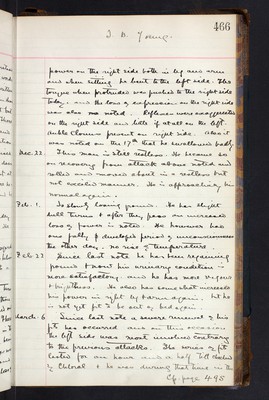 466
J. D. Young.
power on the right side both in leg and arm
and when sitting he bent to the left side. His
tongue when protruded was pushed to the right side
today. and the loss of expression on the right side
was also noted. Reflexes were exaggerated
on the right side and little if at all on the left.
Ankle clonus present on right side. Also it
was noted on the 17th that he swallowed badly
Dec. 22. This man is still restless. He became so
on recovery from attack above noted and
rolled and moved about in a restless but
not excited manner. He is approaching his
normal again.
Feb. 1. Is slowly losing ground. He has slight
dull turns & after they pass an increased
loss of power is noted. He however has
one fully developed period of unconsciousness
the other day. no rise of temperature
Feb 23 Since last note he has been regaining
ground & now his ordinary condition is
more satisfactory and he has more vigour
& brightness. He also has somewhat increased
his power in right leg & arm again. but he
is not yet fit to be out of bed again.
March. 6 Since last note a severe renewal of his
fit has occurred and on this occasion
the left side was most involved contrary
to the previous attacks. The series of fit
lasted for one hour and a half till checked
by Chloral & he was during that time in the
Cf. page 495